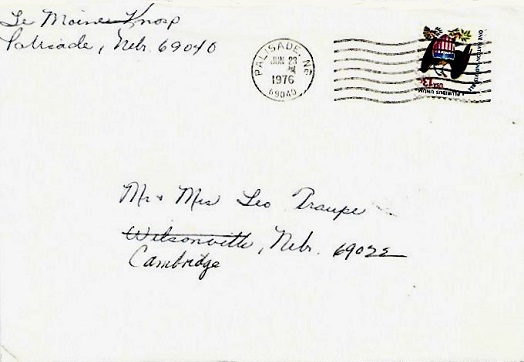 Le Moine Knosp
Palisade, Nebr. 69040
PALISADE, NE
JUN 23
PM
1976
69040
13c
Mr & Mrs Leo Traupe
Wilsonville, Nebr. 69022
Cambridge